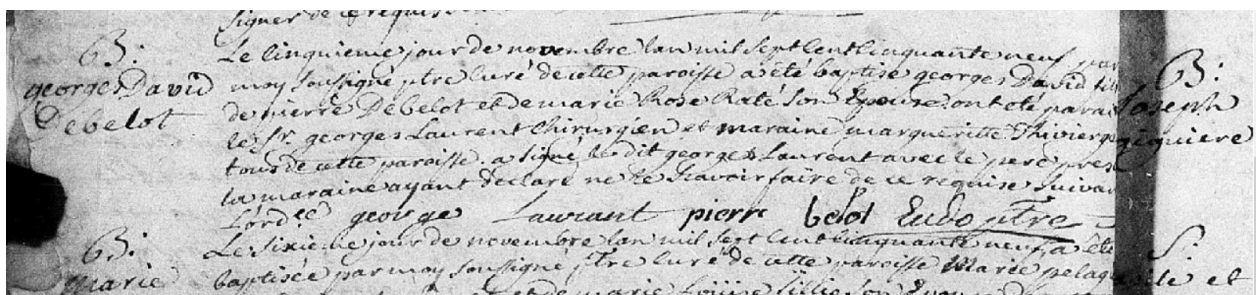 signer de ce requis
B:
georges David
Debelot
Le Cinquieme jour de novembre lan mil sept Cent Cinquante neuf par
moy soussigné ptre Curé de cette paroisse a été baptisé georges David fils
de pierre Debelot et de marie Rose Raté Son Epouse ont été parai
le Sr. georges Laurent Chirurgien et maraine margueritte Thivierge
tous de cette paroisse. a signé le dit georges Laurent avec le pere pres
la maraine ayant déclaré ne le Scavoir faire de ce requise Suivan
L'ord.ce george Laurant pierr belot Eudo ptre
B:
Marie
Le Sixieme jour de novembre lan mil sept Cent Cinquante neuf, a été
baptisée par moy soussigné ptre Curé de cette paroisse Marie pelag
et de marie Son Epou
B:
Joseph
giquiere
S:
et